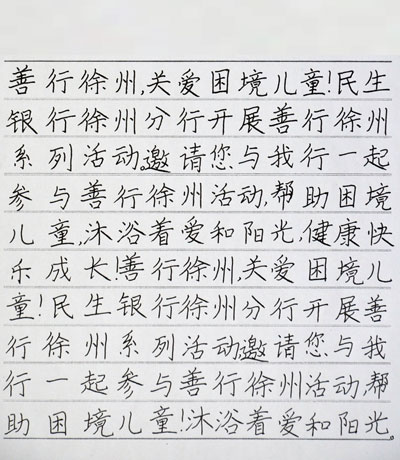 善行徐州,关爱困境儿童!民生
银行徐州分行开展善行徐州
系列活动。邀请您与我行一起
参与善行徐州活动,帮助困境
儿童,沐浴着爱和阳光,健康快
乐成长!善行徐州,关爱困境儿
童!民生银行徐州分行开展善
行徐州系列活动邀请您与我
行一起参与善行徐州活动,帮
助困境儿童!沐浴着爱和阳光。